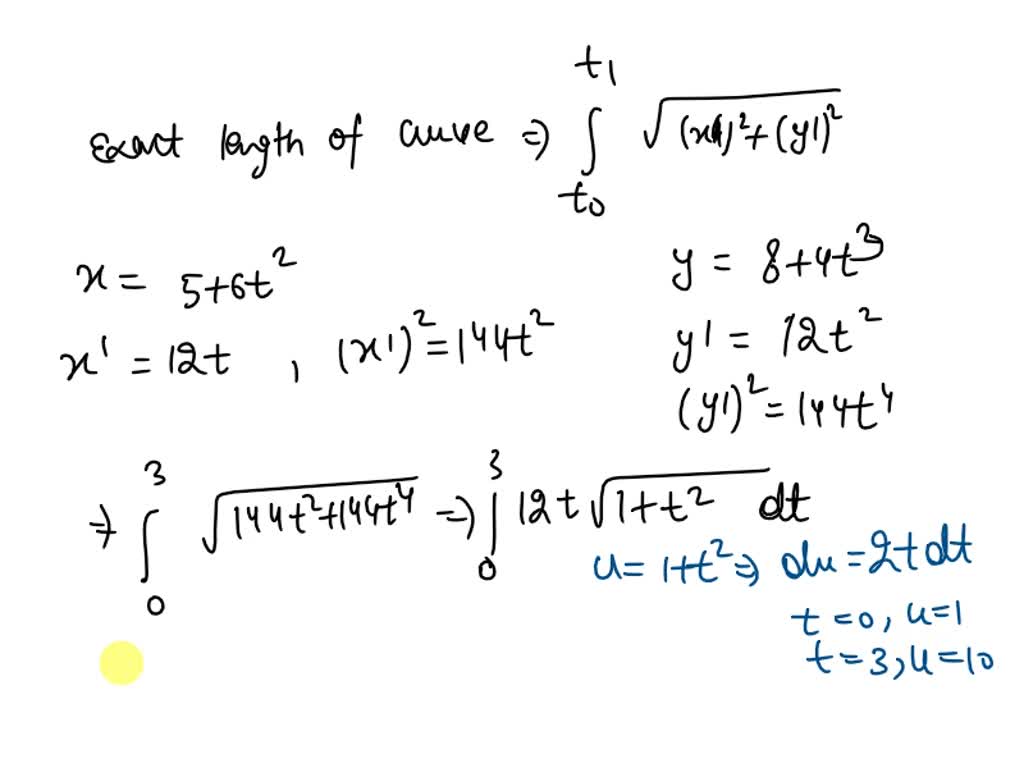 Exact length of curve ⇒ ∫_{t0}^{t1} √((x')²+(y')²)
x = 5+6t²
y = 8+4t³
x' = 12t , (x')² = 144t²
y' = 12t²
(y')² = 144t⁴
⇒ ∫_0^3 √(144t²+144t⁴) ⇒ ∫_0^3 12t √(1+t²) dt
u = 1+t² ⇒ du = 2t dt
t = 0, u=1
t = 3, u=10